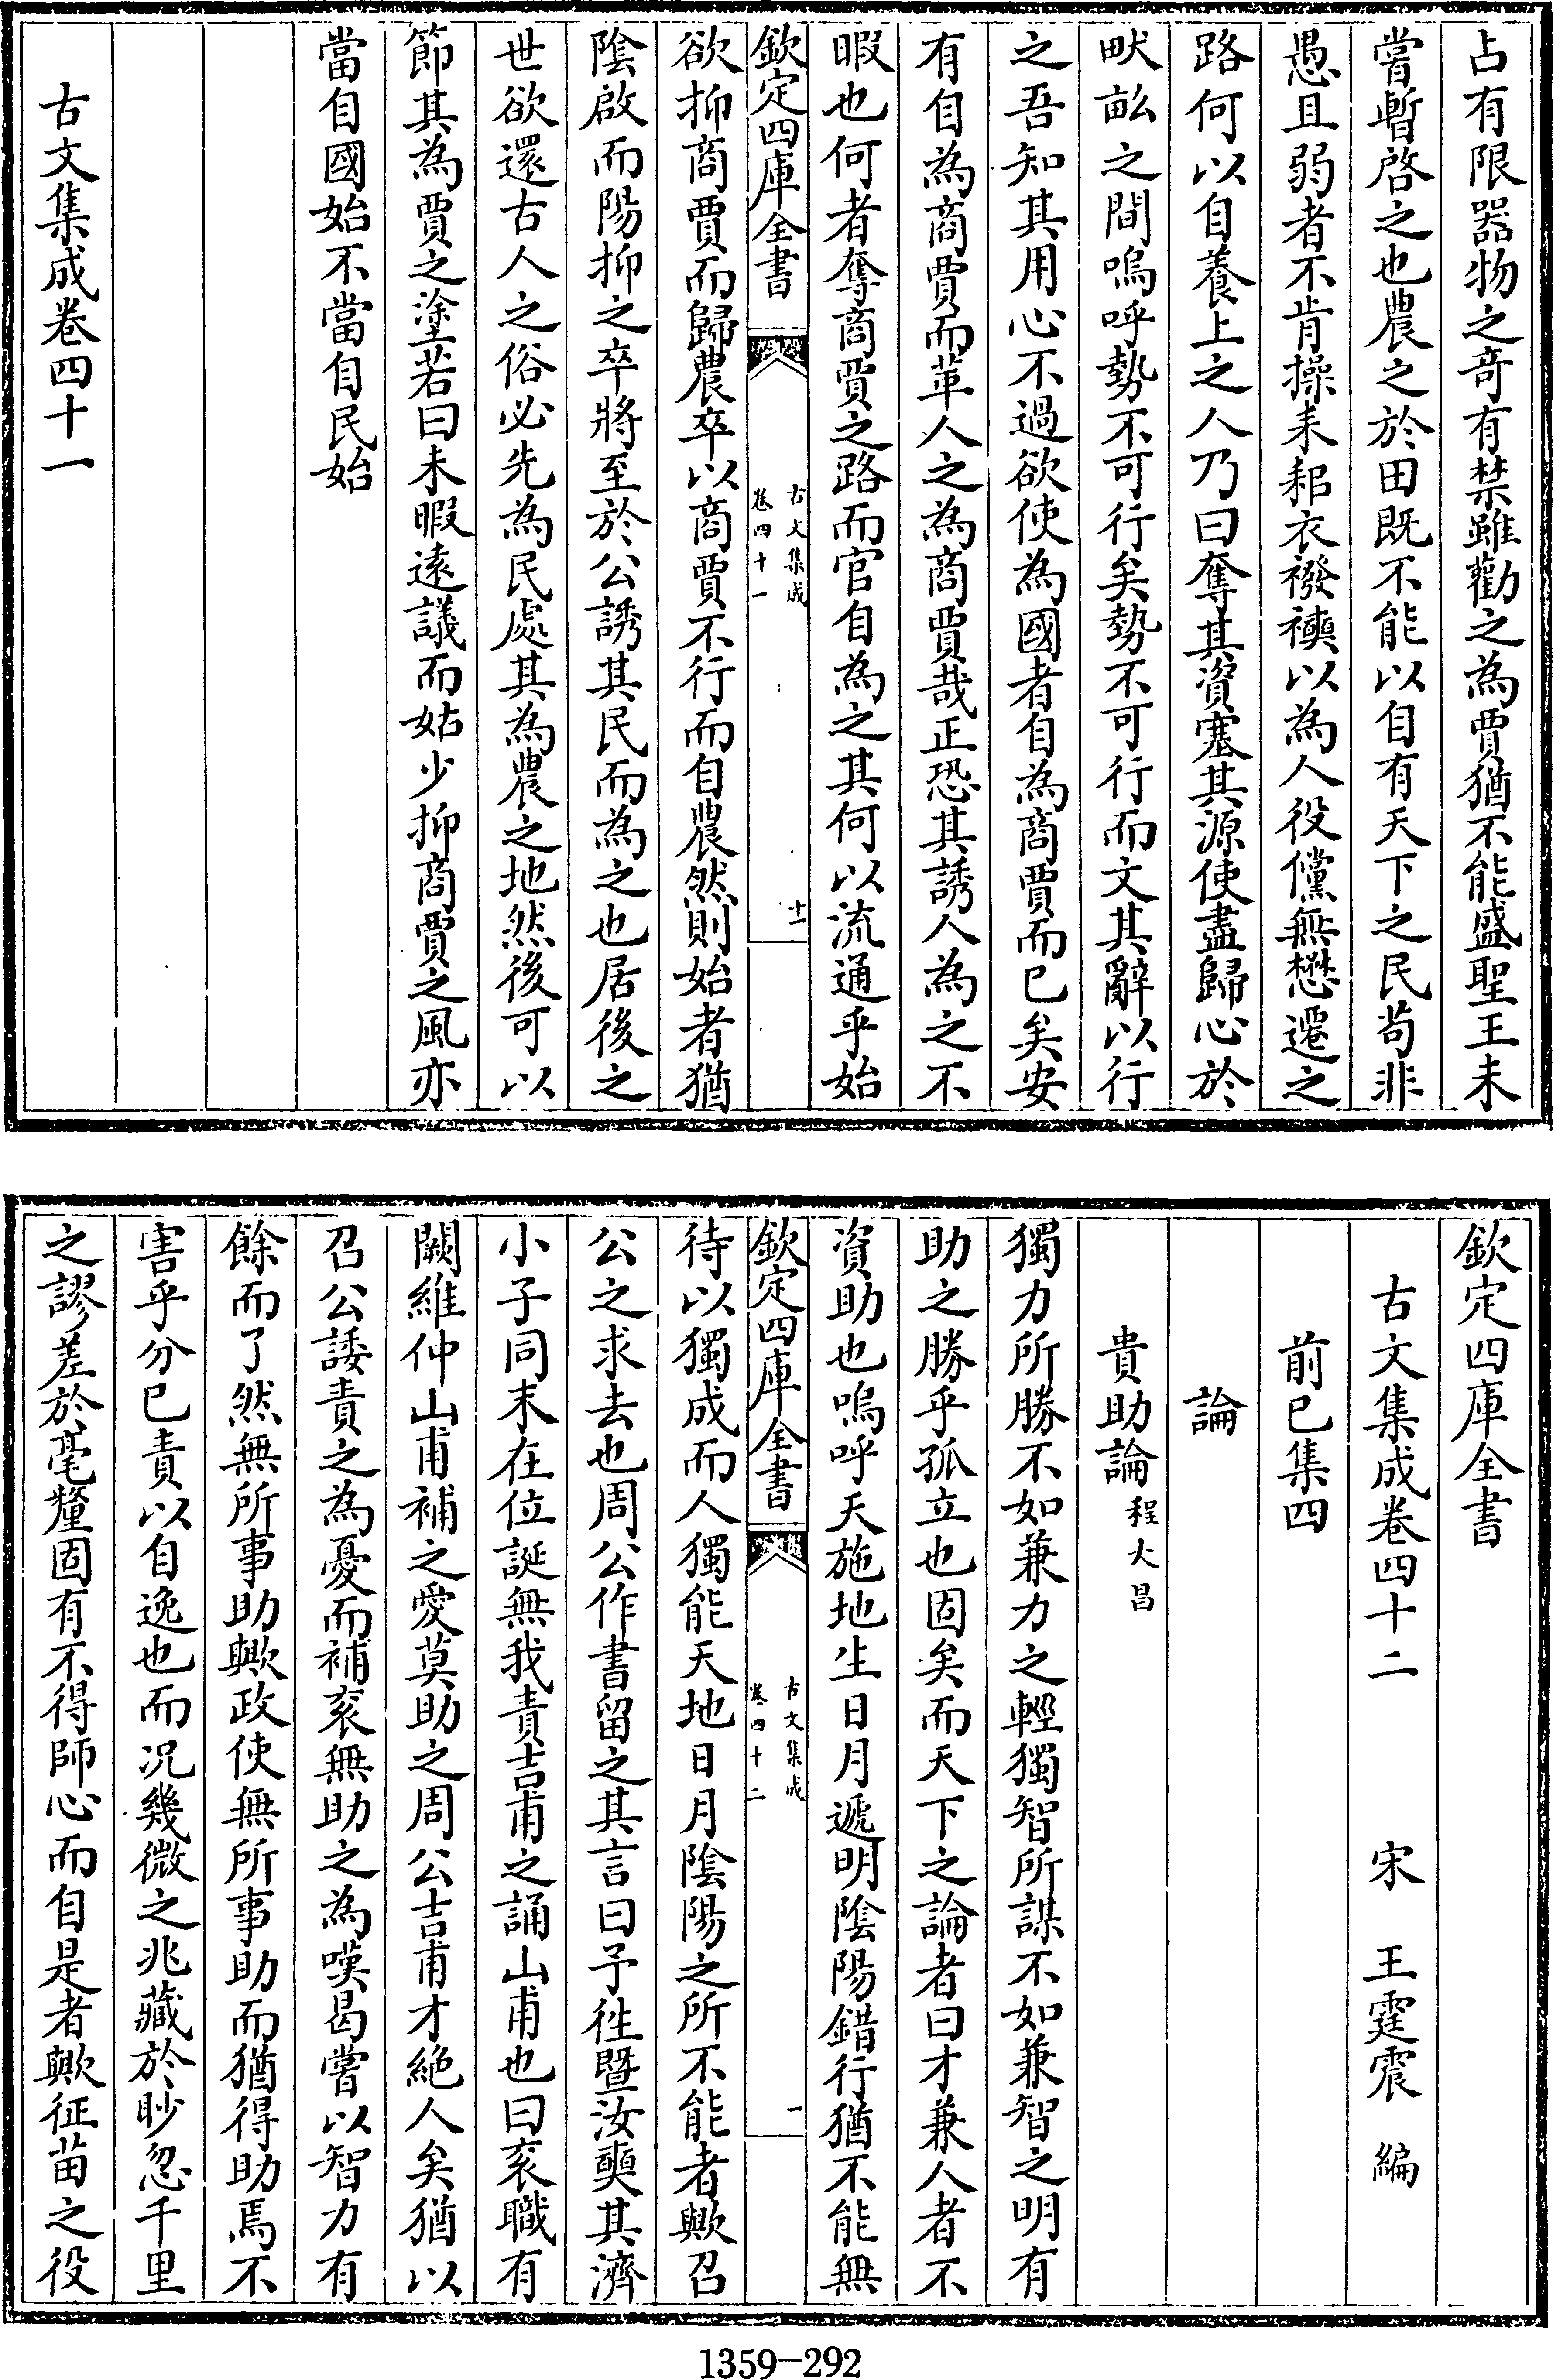 占有限器物之竒有禁雖勸之為賈猶不能盛聖王未
嘗暫啓之也農之於田既不能以自有天下之民茍非
愚且弱者不肯操耒耜衣襏襫以為人役儻無懋遷之
路何以自養上之人乃曰奪其資塞其源使盡歸心於
畎畝之間嗚呼勢不可行矣勢不可行而文其辭以行
之吾知其用心不過欲使為國者自為商賈而已矣安
有自為商賈而革人之為商賈哉正恐其誘人為之不
暇也何者奪商賈之路而官自為之其何以流通乎始
欽定四庫全書
古文集成
卷四十一
十一
欲抑商賈而歸農卒以商賈不行而自農然則始者猶
陰啟而陽抑之卒將至於公誘其民而為之也居後之
世欲還古人之俗必先為民處其為農之地然後可以
節其為賈之塗若曰未暇遠議而姑少抑商賈之風亦
當自國始不當自民始
古文集成卷四十一
欽定四庫全書
古文集成卷四十二 宋 王霆震 編
前已集四
論
貴助論 程大昌
獨力所勝不如兼力之輕獨智所謀不如兼智之明有
助之勝乎孤立也固矣而天下之論者曰才兼人者不
資助也嗚呼天施地生日月遞明陰陽錯行猶不能無
欽定四庫全書
古文集成
卷四十二
一
待以獨成而人獨能天地日月陰陽之所不能者歟召
公之求去也周公作書留之其言曰予徃暨汝奭其濟
小子同未在位誕無我責吉甫之誦山甫也曰衮職有
闕維仲山甫補之愛莫助之周公吉甫才絶人矣猶以
召公諉責之為憂而補衮無助之為嘆曷嘗以智力有
餘而了然無所事助歟政使無所事助而猶得助焉不
害乎分已責以自逸也而况幾微之兆藏於眇忽千里
之謬差於毫釐固有不得師心而自是者歟征苗之役
1359-292